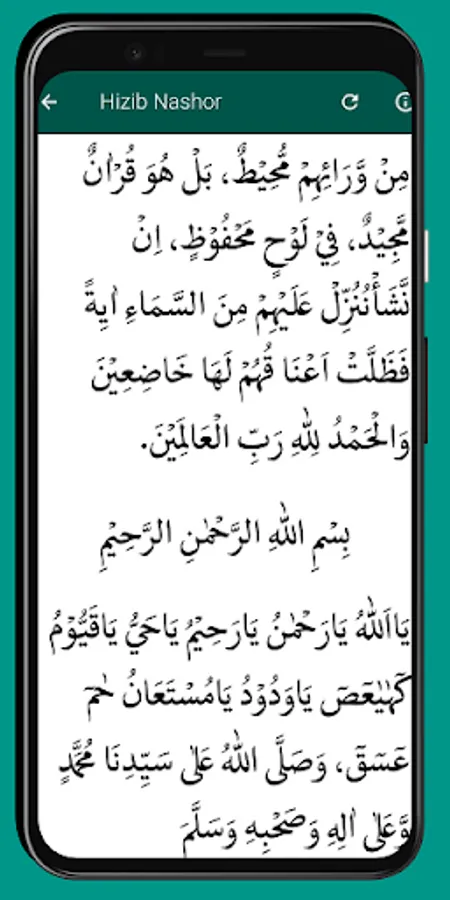 Hizib Nashor
مِنْ وَّرَائِهِمْ مُّحِيْطٌ، بَلْ هُوَ قُرْاٰنٌ
مَّجِيْدٌ، فِيْ لَوْحٍ مَحْفُوْظٍ، اِنْ
نَّشَأْنُنَزِّلْ عَلَيْهِمْ مِنَ السَّمَاءِ اٰيَةً
فَظَلَّتْ اَعْنَا قُهُمْ لَهَا خَاضِعِيْنَ
وَالْحَمْدُ لِلّٰهِ رَبِّ الْعَالَمِيْنَ.
بِسْمِ اللّٰهِ الرَّحْمٰنِ الرَّحِيْمِ
يَااَللّٰهُ يَارَحْمٰنُ يَارَحِيْمُ يَاحَيُّ يَاقَيُّوْمُ
كَهٰيٰعٓصٓ يَاوَدُوْدُ يَامُسْتَعَانُ حٰمٓ
عٓسٓقٓ، وَصَلَّى اللّٰهُ عَلٰى سَيِّدِنَا مُحَمَّدٍ
وَّعَلٰى اٰلِهِ وَصَحْبِهِ وَسَلَّمَ